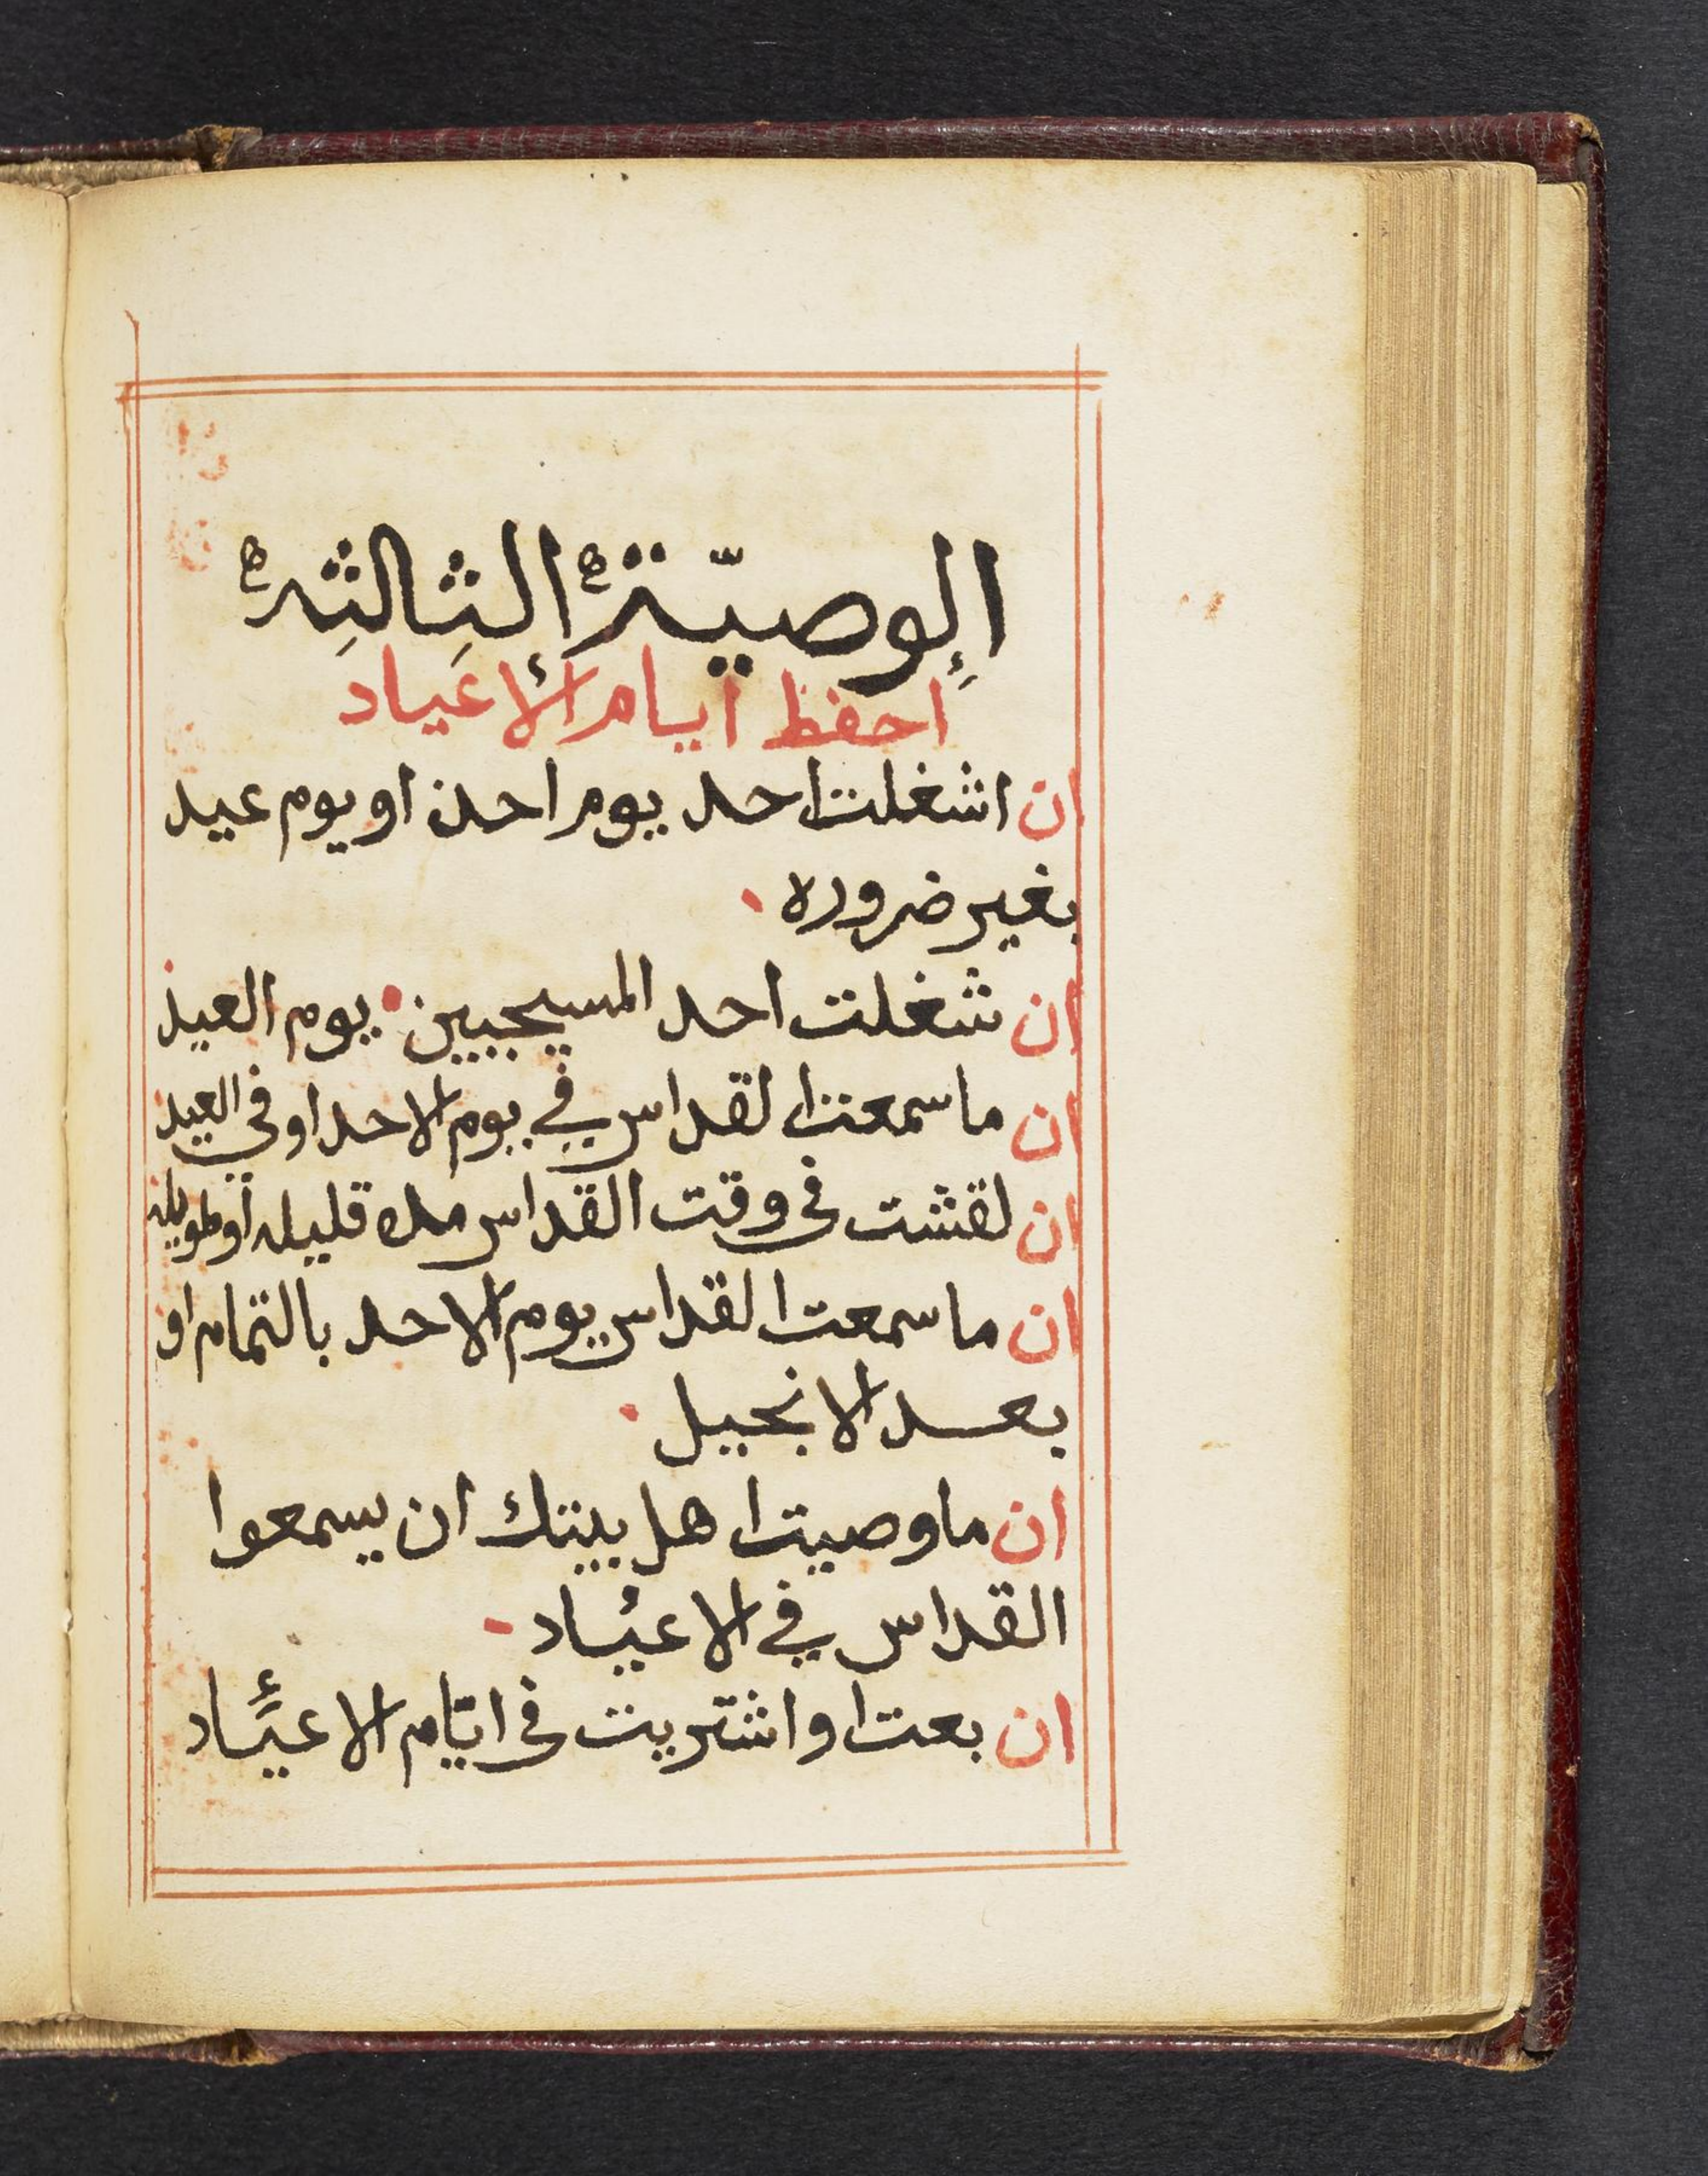 الوصيّة الثالثه
احفظ ايام الاعياد
ان اشغلت احد يوم احد او يوم عيد
بغير ضروره
ان شغلت احد المسيحيين يوم العيد
ان ما سمعت القداس في يوم الاحد او في العيد
ان لقشت في وقت القداس مده قليله او طويله
ان ما سمعت القداس يوم الاحد بالتمام او
بعد الانجيل
ان ما وصيت اهل بيتك ان يسمعوا
القداس في الاعياد
ان بعت او اشتريت في ايّام الاعيَاد